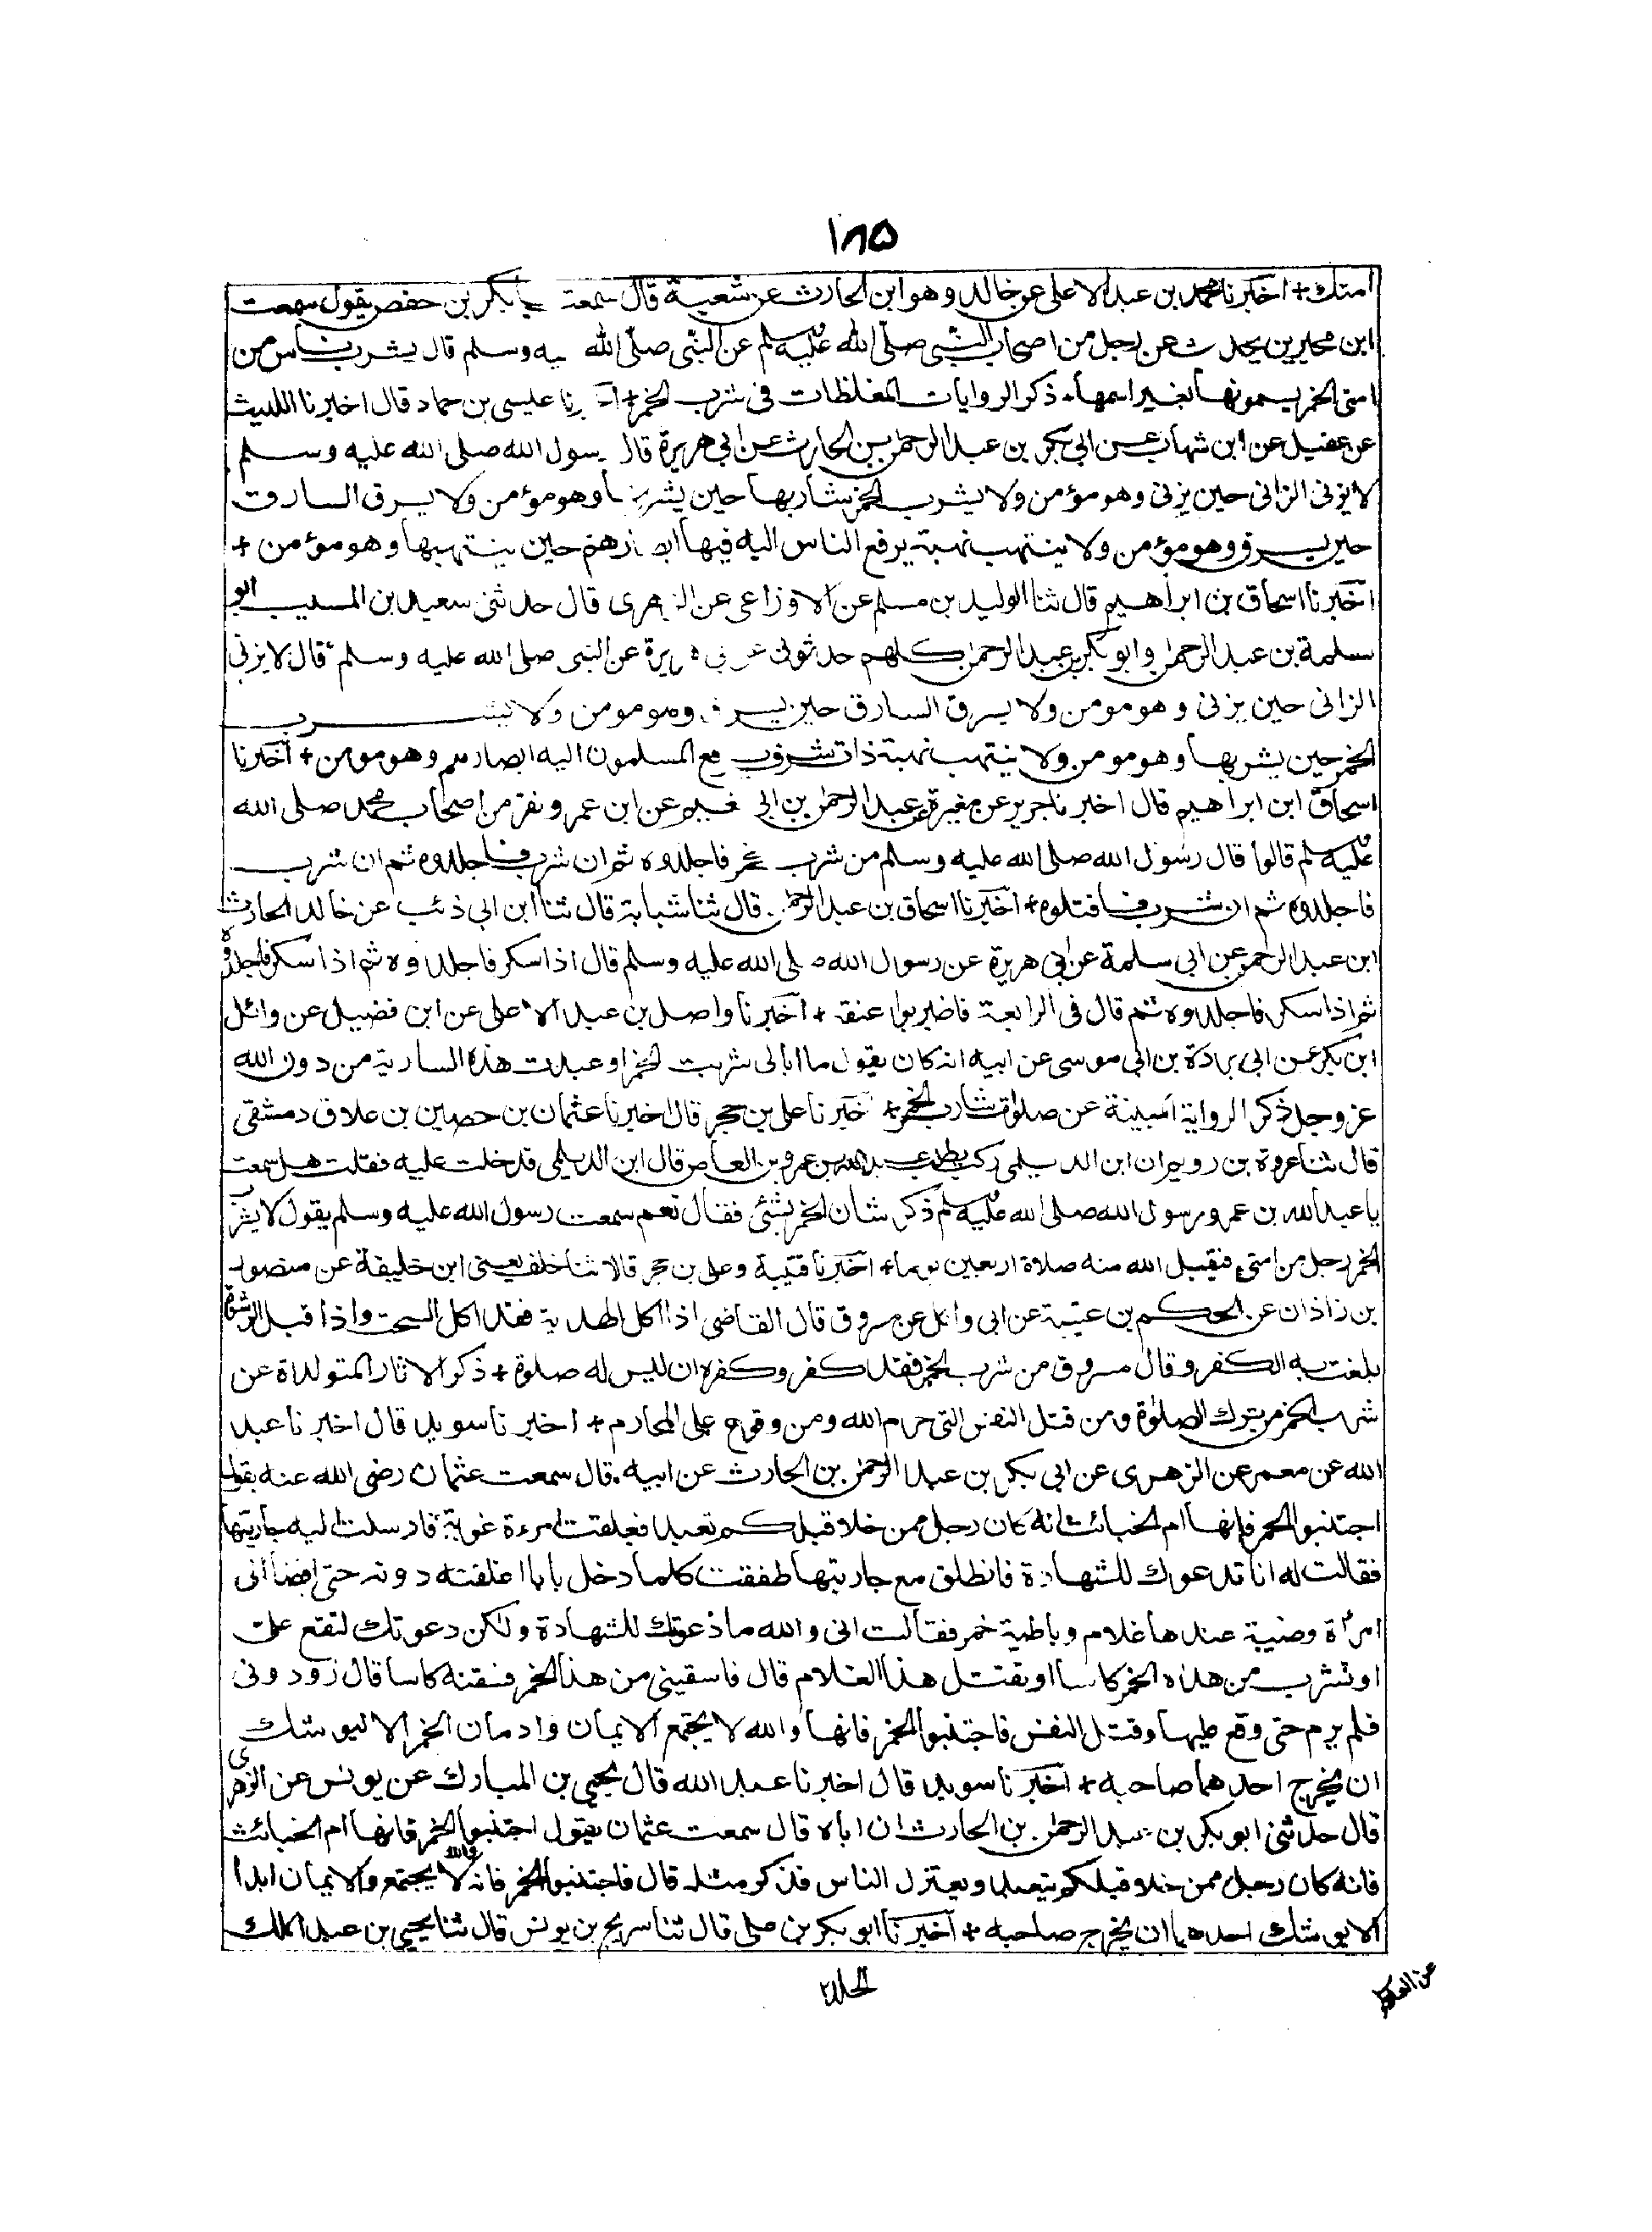 ١٨٥
امتك + اخبرنا محمد بن عبد الاعلى عن خالد وهو ابن الحارث عن شعبة قال سمعت بكر بن حفص يقول سمعت
ابن محيريز يحدث عن رجل من اصحاب النبي صلى الله عليه وسلم عن النبي صلى الله يه وسلم قال يشرب ناس من
امتي الخمر يسمونها بغير اسمها، ذكر الروايات المغلظات في شرب الخمر + نا عليسى بن حماد قال اخبرنا الليث
عن عقيل عن ابن شهاب عن ابي بكر بن عبد الرحمن بن الحارث عن ابي هريرة قال رسول الله صلى الله عليه وسلم
لا يزني الزاني حين يزني وهو مؤمن ولا يشرب الخمر شاربها حين يشربها وهو مؤمن ولا يسرق السارق
حين يسرق وهو مؤمن ولا ينتهب نهبة يرفع الناس اليه فيها ابصارهم حين ينتهبها وهو مؤمن +
اخبرنا اسحاق بن ابراهيم قال ثنا الوليد بن مسلم عن الاوزاعي عن الزهرى قال حدثني سعيد بن المسيب ابو
سلمة بن عبد الرحمن وابو بكر بن عبد الرحمن كلهم حدثوني عن ابي هريرة عن النبي صلى الله عليه وسلم قال لا يزني
الزاني حين يزني وهو مومن ولا يسرق السارق حين يسرق وهو مومن ولا يشرب
الخمر حين يشربها وهو مومن ولا ينتهب نهبة ذات شرف يرفع المسلمون اليه ابصارهم وهو مومن + اخبرنا
اسحاق ابن ابراهيم قال اخبرنا جرير عن مغيرة عن عبد الرحمن بن ابي نعيم عن ابن عمر ونفر من اصحاب محمد صلى الله
عليه وسلم قالوا قال رسول الله صلى الله عليه وسلم من شرب خمر فاجلدوه ثم ان شرب فاجلدوه ثم ان شرب
فاجلدوه ثم ان شرب فاقتلوه + اخبرنا اسحاق بن عبد الرحمن قال ثنا شبابة قال ثنا ابن ابي ذئب عن خالد الحارث
ابن عبد الرحمن عن ابي سلمة عن ابي هريرة عن رسول الله صلى الله عليه وسلم قال اذا سكر فاجلدوه ثم اذا سكر فاجلدوه
ثم اذا سكر فاجلدوه ثم قال في الرابعة فاضربوا عنقه + اخبرنا واصل بن عبد الاعلى عن ابن فضيل عن وائل
ابن بكر عن ابي بردة بن ابي موسى عن ابيه انه كان يقول ما ابالي شربت الخمر او عبدت هذه السارية من دون الله
عز وجل ذكر الرواية المبينة عن صلوات شارب الخمر + اخبرنا علي بن حجر قال اخبرنا عثمان بن حصين بن علاق دمشقي
قال ثنا عروة بن رويم ان ابن الديلمي ركب يطلب عبد الله بن عمرو بن العاص قال ابن الديلمي قدخلت عليه فقلت هل سمعت
يا عبد الله بن عمرو رسول الله صلى الله عليه وسلم ذكر شان الخمر بشئ فقال نعم سمعت رسول الله عليه وسلم يقول لا يشرب
الخمر رجل من امتي فيقبل الله منه صلاة اربعين يوما + اخبرنا قتيبة وعلي بن حجر قالا ثنا خلف يعني ابن خليفة عن منصور
بن زاذان عن الحكم بن عتيبة عن ابي وائل عن مسروق قال القاضي اذا اكل الهدية فقد اكل السحت واذا قبل الرشوة
بلغت به الكفر وقال مسروق من شرب الخمر فقد كفر وكفره ان ليس له صلوة + ذكر الاثار المتولدة عن
شرب الخمر من ترك الصلوة ومن قتل النفس التي حرم الله ومن وقوع على المحارم + اخبرنا سويد قال اخبرنا عبد
الله عن معمر عن الزهرى عن ابي بكر بن عبد الرحمن بن الحارث عن ابيه قال سمعت عثمان رضي الله عنه يقول
اجتنبوا الخمر فانها ام الخبائث انه كان رجل ممن خلا قبلكم تعبد فعلقت امرءة غوية فارسلت اليه جاريتها
فقالت له انا ندعوك للشهادة فانطلق مع جاريتها طفقت كلما دخل بابا اغلقته دونه حتى افضا الى
امرأة وضيئة عندها غلام وباطية خمر فقالت اني والله ما دعوتك للشهادة ولكن دعوتك لتقع على
او تشرب من هذه الخمر كاسا او تقتل هذا الغلام قال فاسقيني من هذا الخمر فسقته كاسا قال زودوني
فلم يرم حتى وقع عليها وقتل النفس فاجتنبوا الخمر فانها والله لا يجتمع الايمان وادمان الخمر الا ليوشك
ان يخرج احدهما صاحبه + اخبرنا سويد قال اخبرنا عبد الله قال يحيى بن المبارك عن يونس عن الزهرى
قال حدثني ابو بكر بن عبد الرحمن بن الحارث ان اباه قال سمعت عثمان يقول اجتنبوا الخمر فانها ام الخبائث
فانه كان رجل ممن خلا قبلكم يتعبد ويعتزل الناس فذكر مثله قال فاجتنبوا الخمر فانه والله لا يجتمع والايمان ابدا
الا يوشك احدهما ان يخرج صاحبه + اخبرنا ابو بكر بن علي قال ثنا سريج بن يونس قال ثنا يحيى بن عبد الملك
الجلد٢
عن العلاء